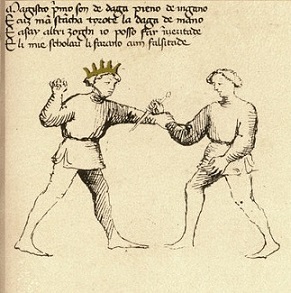 Magistro pmo son de daga pieno de ingano
E cuz mā stācha torote la daga de mano
E asay altri zoghi io posso far i ueritade
E li mie scholari li farano cum falsitade